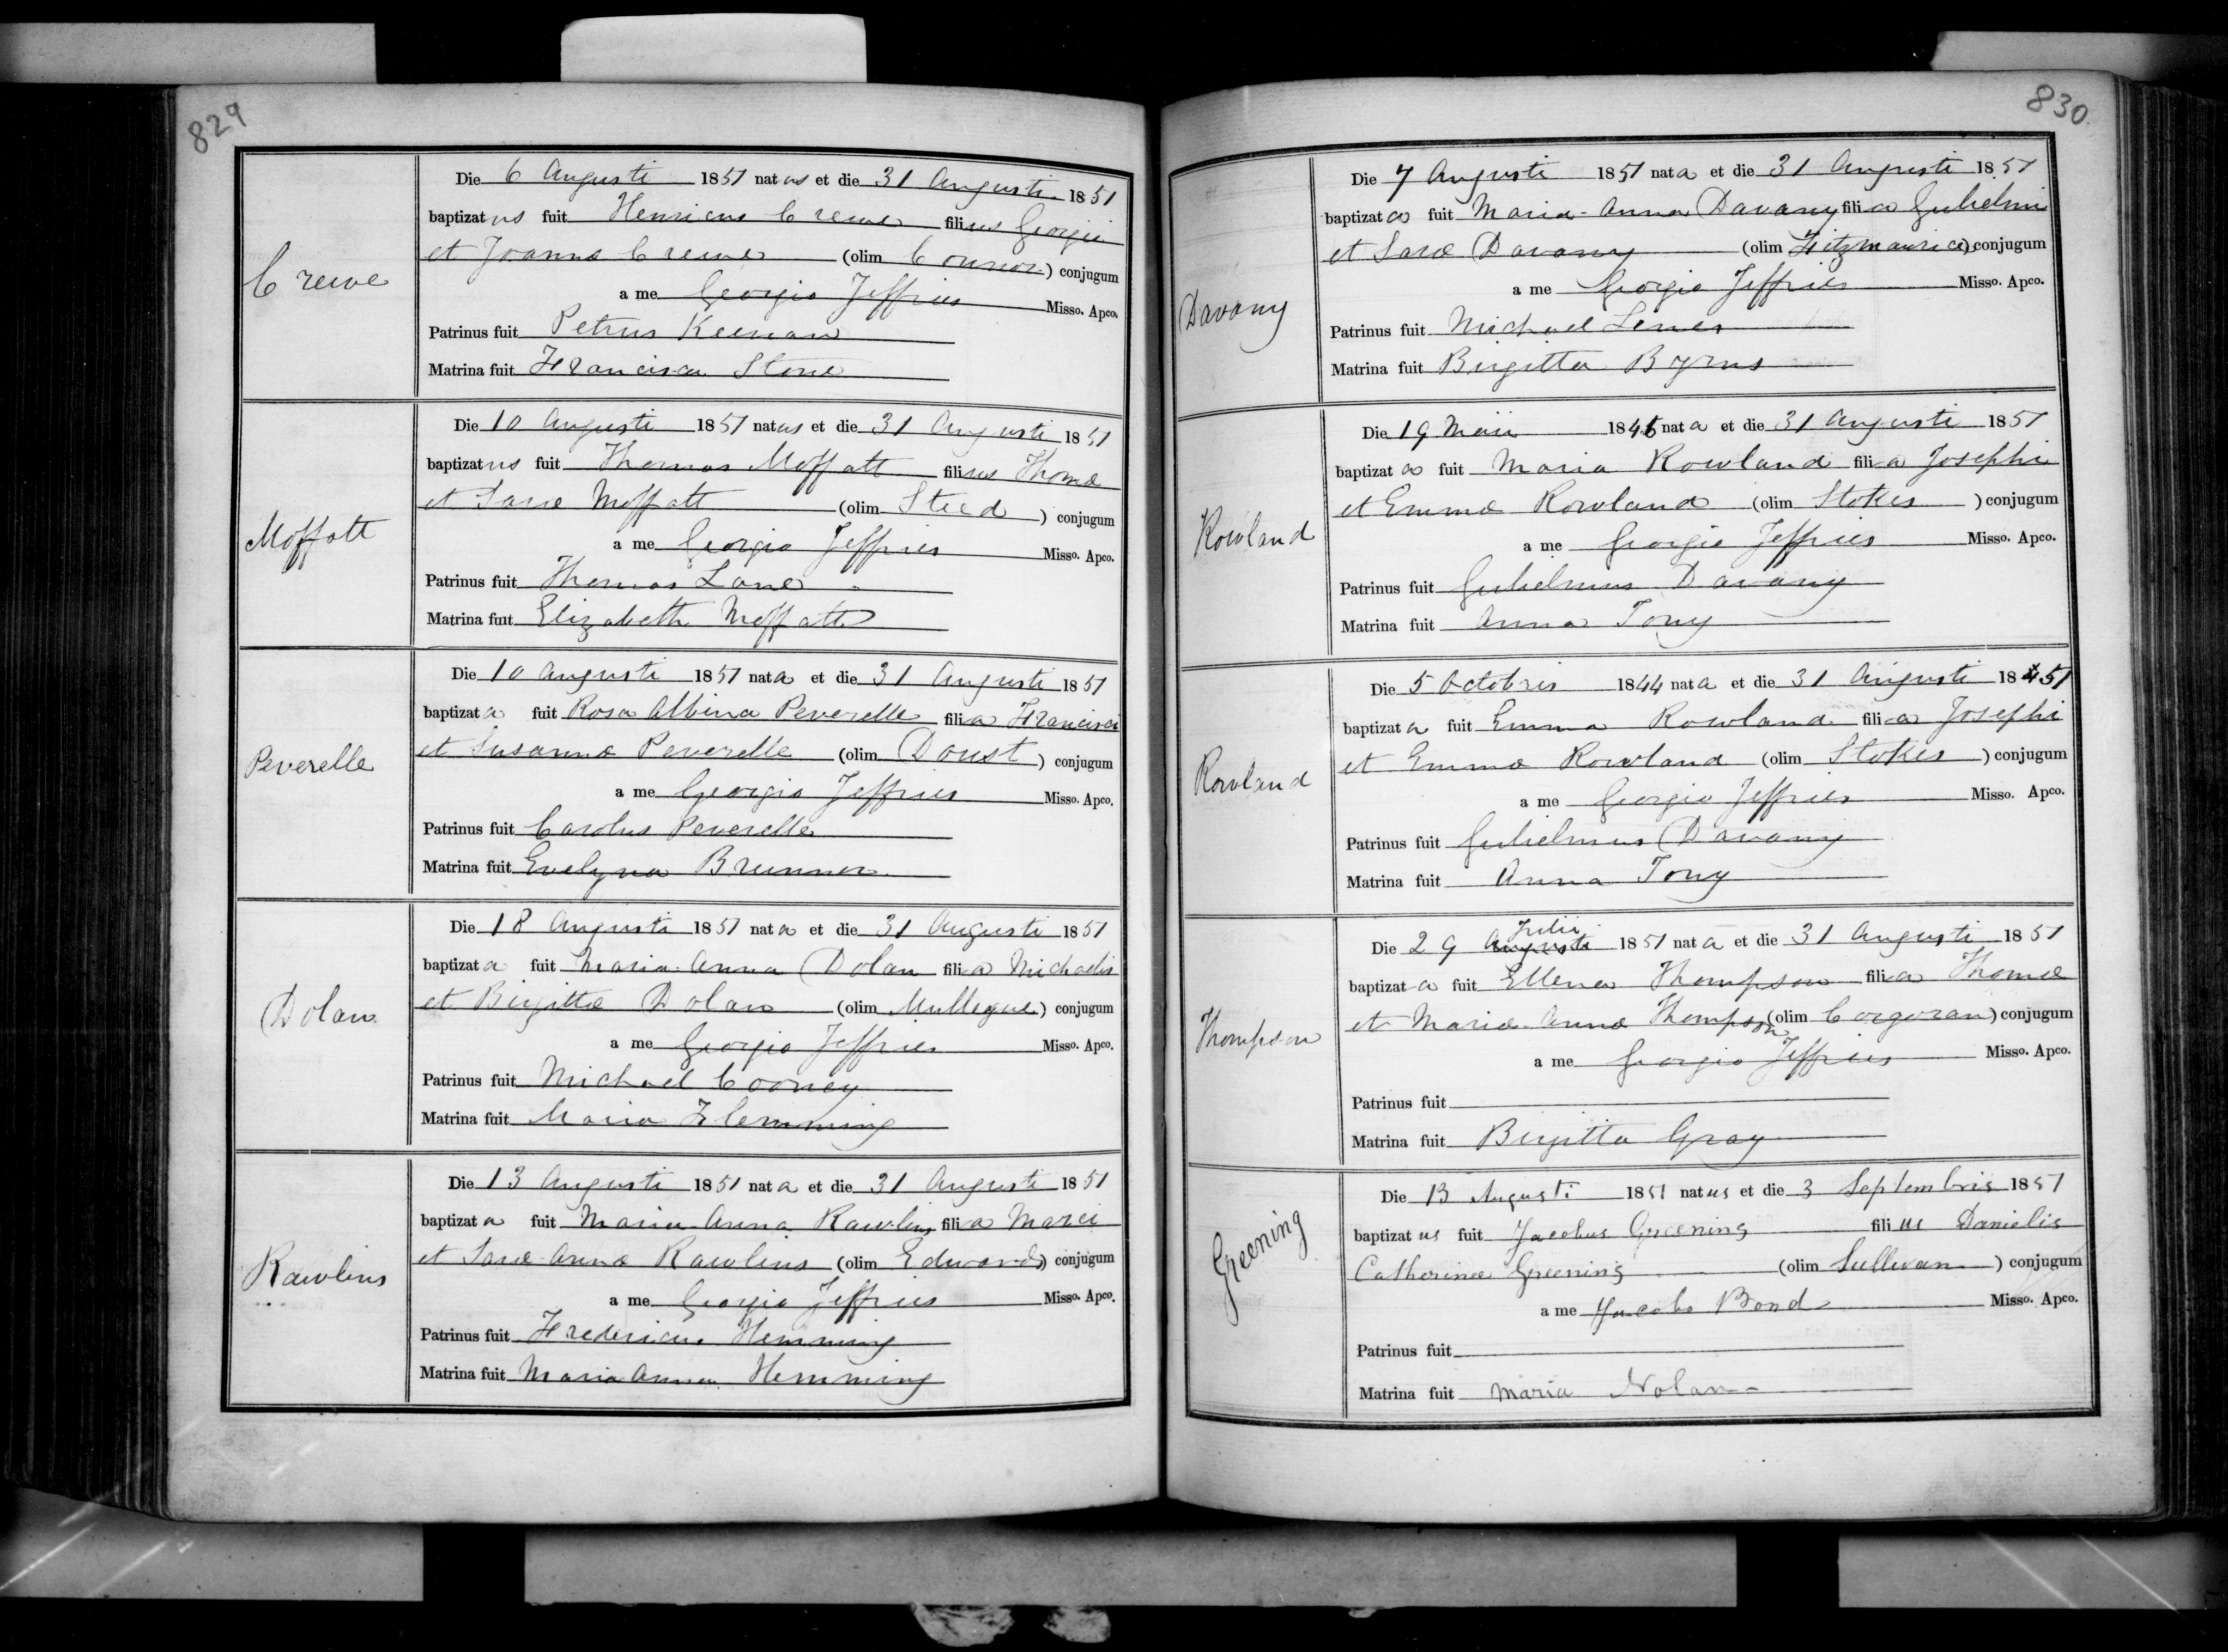 829
Crewe
Die 6 Augusti 1851 natus et die 31 Augusti 1851
baptizatus fuit Henricus Crewe filius Georgii
et Joannæ Crewe (olim Connor) conjugum
a me Georgio Jeffries Misso. Apco.
Patrinus fuit Petrus Keenan
Matrina fuit Francisca Stone
Moffatt
Die 10 Augusti 1851 natus et die 31 Augusti 1851
baptizatus fuit Thomas Moffatt filius Thomæ
et Saræ Moffatt (olim Steed) conjugum
a me Georgio Jeffries Misso. Apco.
Patrinus fuit Thomas Lane
Matrina fuit Elizabeth Moffatt
Peverelle
Die 10 Augusti 1851 nata et die 31 Augusti 1851
baptizata fuit Rosa Albina Peverelle filia Francisci
et Susannæ Peverelle (olim Doust) conjugum
a me Georgio Jeffries Misso. Apco.
Patrinus fuit Carolus Peverelle
Matrina fuit Evelyna Brunner
Dolan
Die 18 Augusti 1851 nata et die 31 Augusti 1851
baptizata fuit Maria Anna Dolan filia Michaelis
et Birgittæ Dolan (olim Mullegue) conjugum
a me Georgio Jeffries Misso. Apco.
Patrinus fuit Michael Cooney
Matrina fuit Maria Flemming
Rawlins
Die 13 Augusti 1851 nata et die 31 Augusti 1851
baptizata fuit Maria Anna Rawlins filia Marci
et Saræ Annæ Rawlins (olim Edwards) conjugum
a me Georgio Jeffries Misso. Apco.
Patrinus fuit Fredericus Hemming
Matrina fuit Maria Anna Hemming
830
Davany
Die 7 Augusti 1851 nata et die 31 Augusti 1851
baptizata fuit Maria-Anna Davany filia Gulielmi
et Saræ Davany (olim Fitzmaurice) conjugum
a me Georgio Jeffries Misso. Apco.
Patrinus fuit Michael Lenes
Matrina fuit Birgitta Byrns
Rowland
Die 19 Maii 1846 nata et die 31 Augusti 1851
baptizata fuit Maria Rowland filia Josephi
et Emmæ Rowland (olim Stokes) conjugum
a me Georgio Jeffries Misso. Apco.
Patrinus fuit Gulielmus Davany
Matrina fuit Anna Tony
Rowland
Die 5 Octobris 1844 nata et die 31 Augusti 1851
baptizata fuit Emma Rowland filia Josephi
et Emmæ Rowland (olim Stokes) conjugum
a me Georgio Jeffries Misso. Apco.
Patrinus fuit Gulielmus Davany
Matrina fuit Anna Tony
Thompson
Julii
Die 29 Augusti 1851 nata et die 31 Augusti 1851
baptizata fuit Ellena Thompson filia Thomæ
et Mariæ Annæ Thompson (olim Corgoran) conjugum
a me Georgio Jeffries Misso. Apco.
Patrinus fuit
Matrina fuit Birgitta Gray
Greening
Die 13 Augusti 1851 natus et die 3 Septembris 1851
baptizatus fuit Jacobus Greening filius Danielis
Catherinæ Greening (olim Sullivan) conjugum
a me Jacobo Bond Misso. Apco.
Patrinus fuit
Matrina fuit Maria Nolan